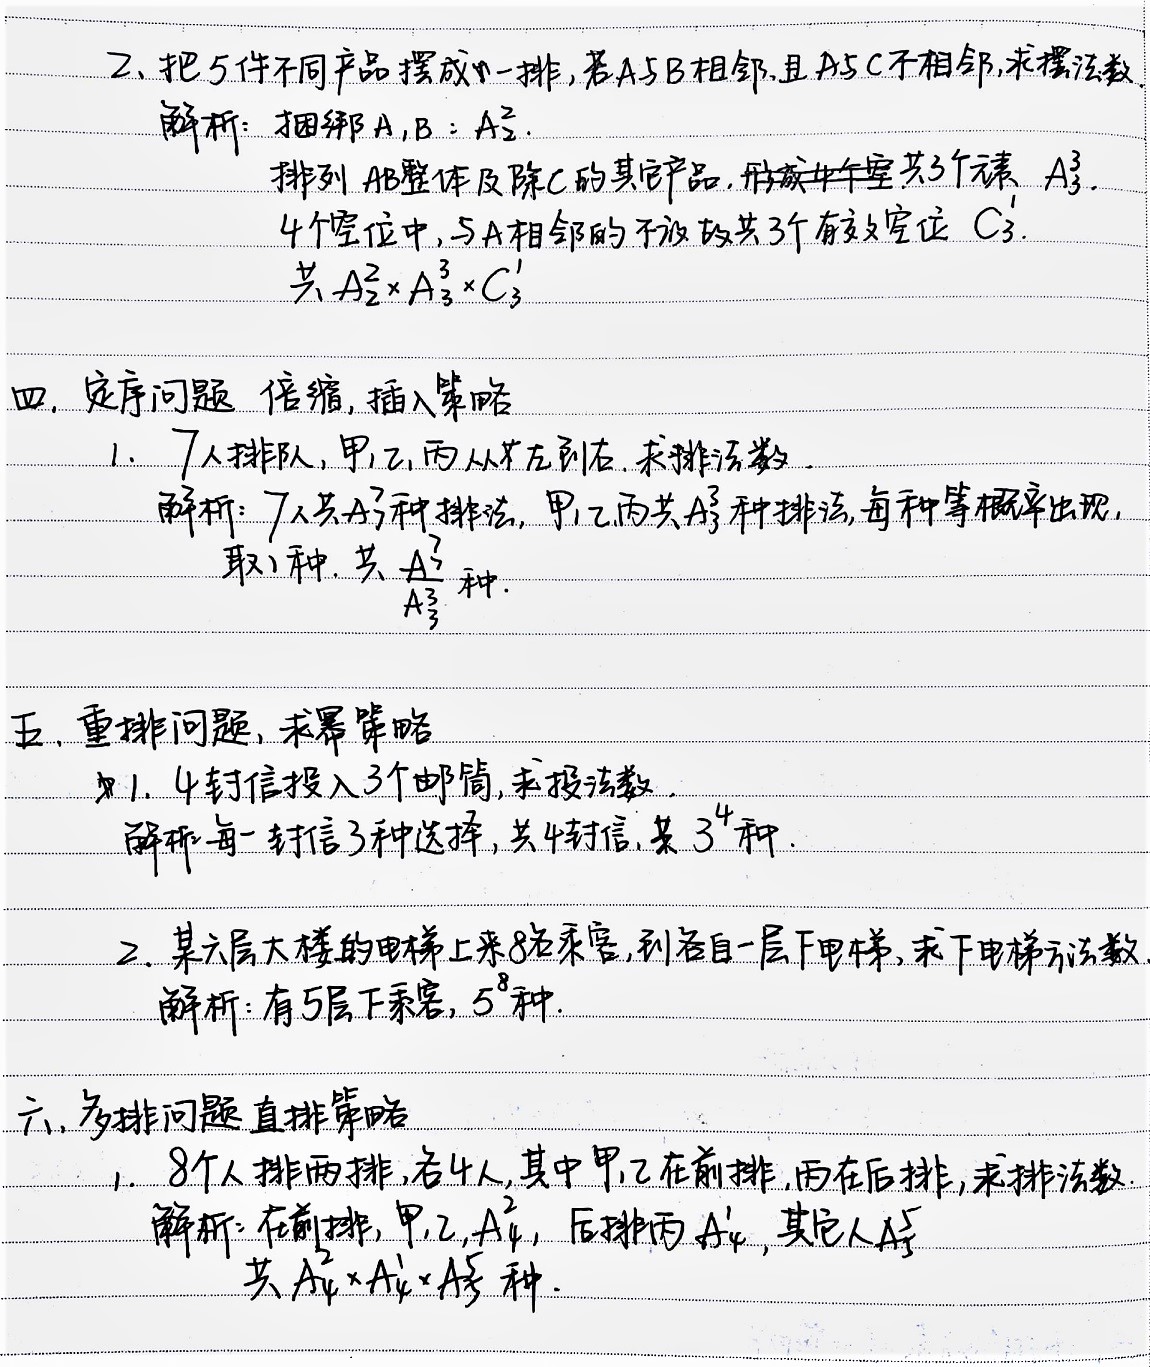 2、把5件不同产品摆成一排,若A与B相邻,且A与C不相邻,求摆法数.
解析: 捆绑A,B: A₂².
排列AB整体及除C的其它产品.形成4个空共3个元素 A₃³.
4个空位中,与A相邻的不放故共3个有效空位 C₃¹.
共 A₂²×A₃³×C₃¹
四. 定序问题 倍缩,插入策略
1. 7人排队,甲,乙,丙从左到右.求排法数.
解析: 7人共A₇⁷种排法, 甲,乙,丙共A₃³种排法,每种等概率出现,
取1种. 共 A₇⁷/A₃³ 种.
五. 重排问题,求幂策略
1. 4封信投入3个邮筒,求投法数.
解析:每一封信3种选择,共4封信,共3⁴种.
2. 某六层大楼的电梯上来8名乘客,到各自一层下电梯,求下电梯方法数.
解析:有5层下乘客, 5⁸种.
六. 多排问题 直排策略
1. 8个人排两排,各4人,其中甲,乙在前排,丙在后排,求排法数.
解析: 在前排,甲,乙,A₄², 后排丙A₄¹,其它人A₅⁵
共 A₄²×A₄¹×A₅⁵ 种.